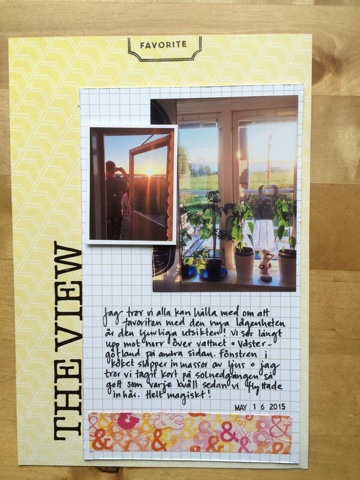 FAVORITE
THE VIEW
Jag tror vi alla kan hålla med om att
favoriten med den nya lägenheten
är den ljuvliga utsikten! Vi ser långt
upp mot norr över vattnet + Väster-
götland på andra sidan. Fönstren i
köket släpper in massor av ljus + jag
tror vi tagit kort på solnedgången så
gott som varje kväll sedan vi flyttade
in här. Helt magiskt!
MAY 16 2015
& & & & & &